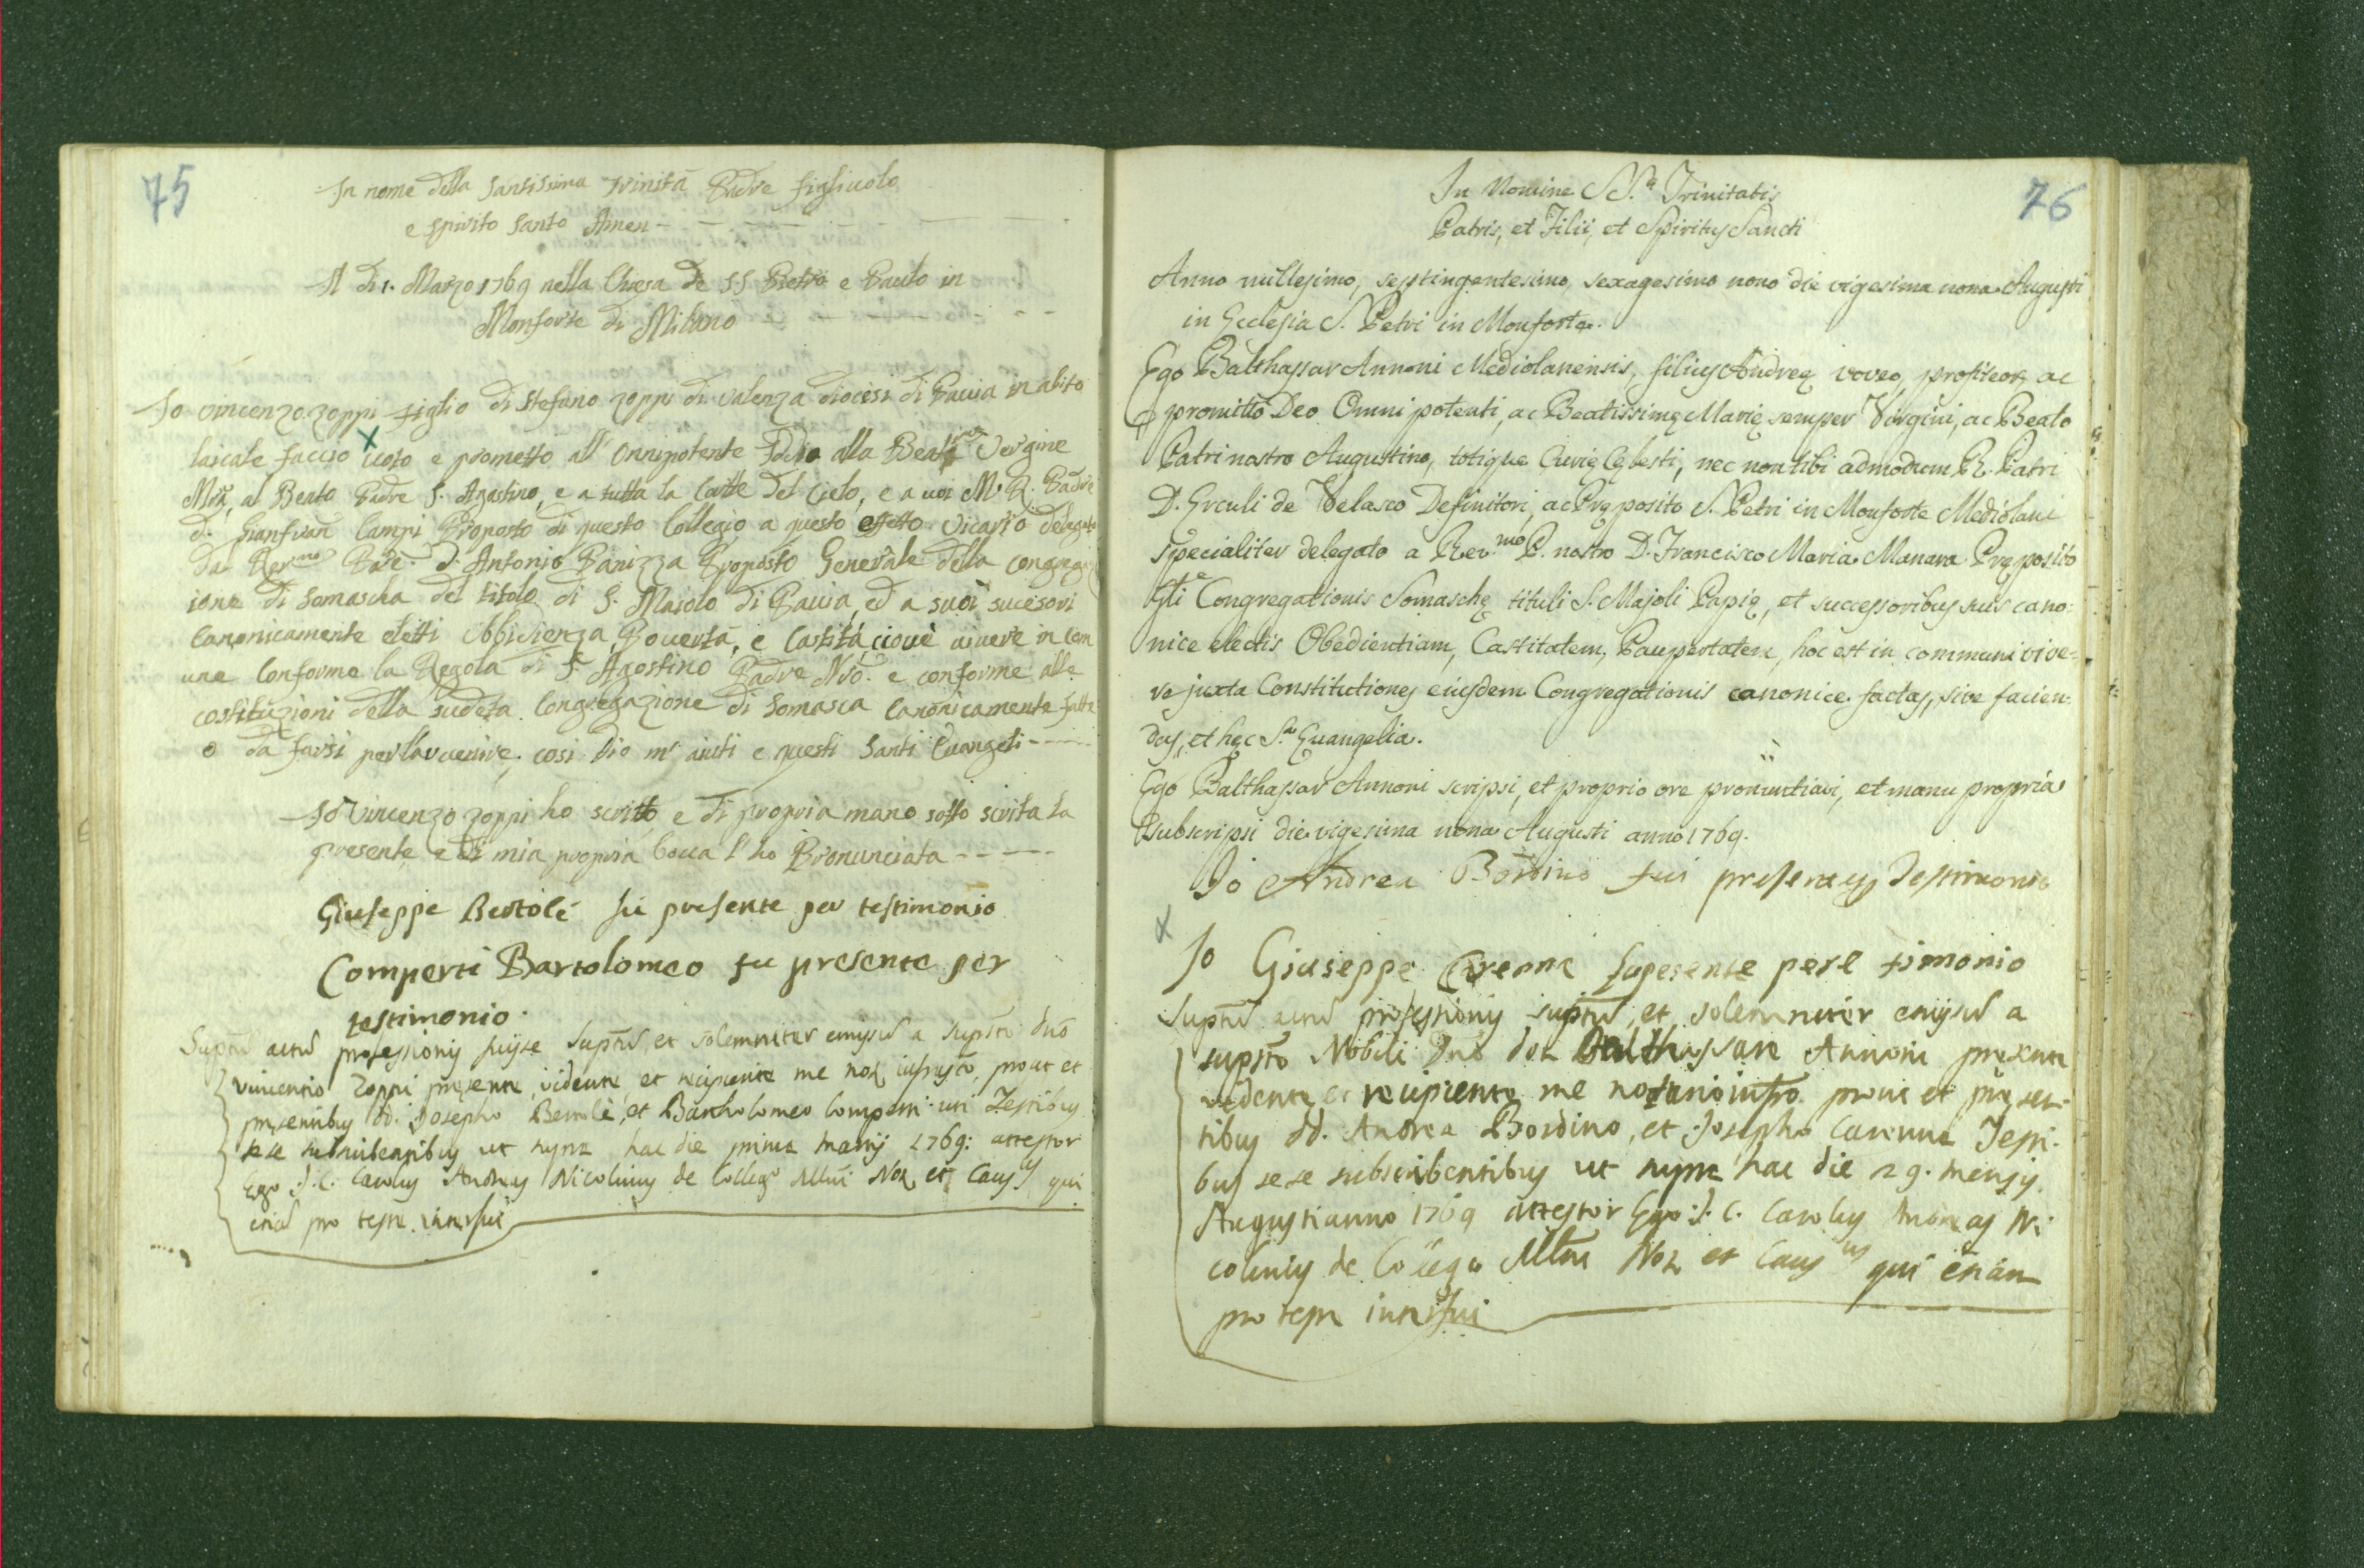 75
In nome della Santissima Trinità Padre figliuolo
e spirito Santo Amen
Il di 1. Marzo 1769 nella Chiesa de SS Pietro e Paulo in
Monforte di Milano
Io vincenzo zoppi figlio di Stefano zoppi di valenza diocesi di Pavia in abito
laicale faccio uoto e prometto all' Onnipotente Idio alla Beatma Vergine
Mria, al Beato Padre S. Agostino, e a tutta la Corte del Cielo, e a uoi M. R. Padre
d. Gianfran Campi Proposto di questo Collegio a questo effetto Vicario delegato
dal Revmo Padre. d. Antonio Panizza Proposto Generale della congregaz
ione di Somascha del titolo di S. Maiolo di Pauia, ed a suoi sucesori
Canonicamente eletti Obbidienza, Pouertà, e Castità, ciouè viuere in Com
une Conforme la Regola di S. Agostino Padre Nro. e conforme alle
costituzioni della sudeta Congregazione di Somasca Canonicamente fatte
o da farsi per l'avuenire. cosi Dio m' aiuti e questi Santi Euangeli
Io Vincenzo zoppi ho scritto e di propria mano sotto scrita la
presente e di mia propria bocca l' ho Pronunciata
Giuseppe Bertolé fui presente per testimonio
Comperti Bartolomeo fu presente per
testimonio.
professionis fuisse et solemniter a
vincentio Zoppi presente, vidente, et recipiente me prout et
presentibus dd. Josepho Bertolè, et Bartholomeo Comperti uti Testibus
sese subscribentibus ut supra hac die prima martij 1769: attestor
Ego J. C. Carolus Andreas Nicolinus de Collego Mlni Not et Causcus qui
pro
76
In Nomine SS.æ Trinitatis
Patris, et Filii, et Spiritus Sancti
Anno millesimo, septingentesimo, sexagesimo nono die vigesima nona Augusti
in Ecclesia S. Petri in Monforte.
Ego Balthassar Annoni Mediolanensis, filius Andreę voveo, profiteor, ac
promitto Deo Omnipotenti, ac Beatissimę Marię semper Virgini, ac Beato
Patri nostro Augustino, totique Curię Cęlesti, nec non tibi admodum R. Patri
D. Erculi de Velasco Definitori, ac Pręposito S. Petri in Monforte Mediolani
specialiter delegato a Rev.mo P. nostro D. Francisco Maria Manara Pręposito
Gli Congregationis Somaschę tituli S. Majoli Papię, et successoribus suis cano:
nice electis Obedientiam, Castitatem, Paupertatem, hoc est in communi vive=
re juxta Constitutiones eiusdem Congregationis canonice factas, sive facien:
das, et hęc S.ta Euangelia.
Ego Balthassar Annoni scripsi, et proprio ore pronuntiavi, et manu propria
subscripsi die vigesima nona Augusti anno 1769.
Io Andrea Bordino fui presente Testimonio
Io Giuseppe fupesente perl timonio
professionis et solemniter a
Nobili Balthassare Annoni presente
vidente et recipiente me notario prout et presen-
tibus dd. Andrea Bordino, et Josepho Carenna Testi-
bus sese subscribentibus ut supra hac die 29. mensis
Augusti anno 1769 attestor Ego J. C. Carolus Andreas Ni
colinus de Collego Mlni Not et Causcus qui
pro